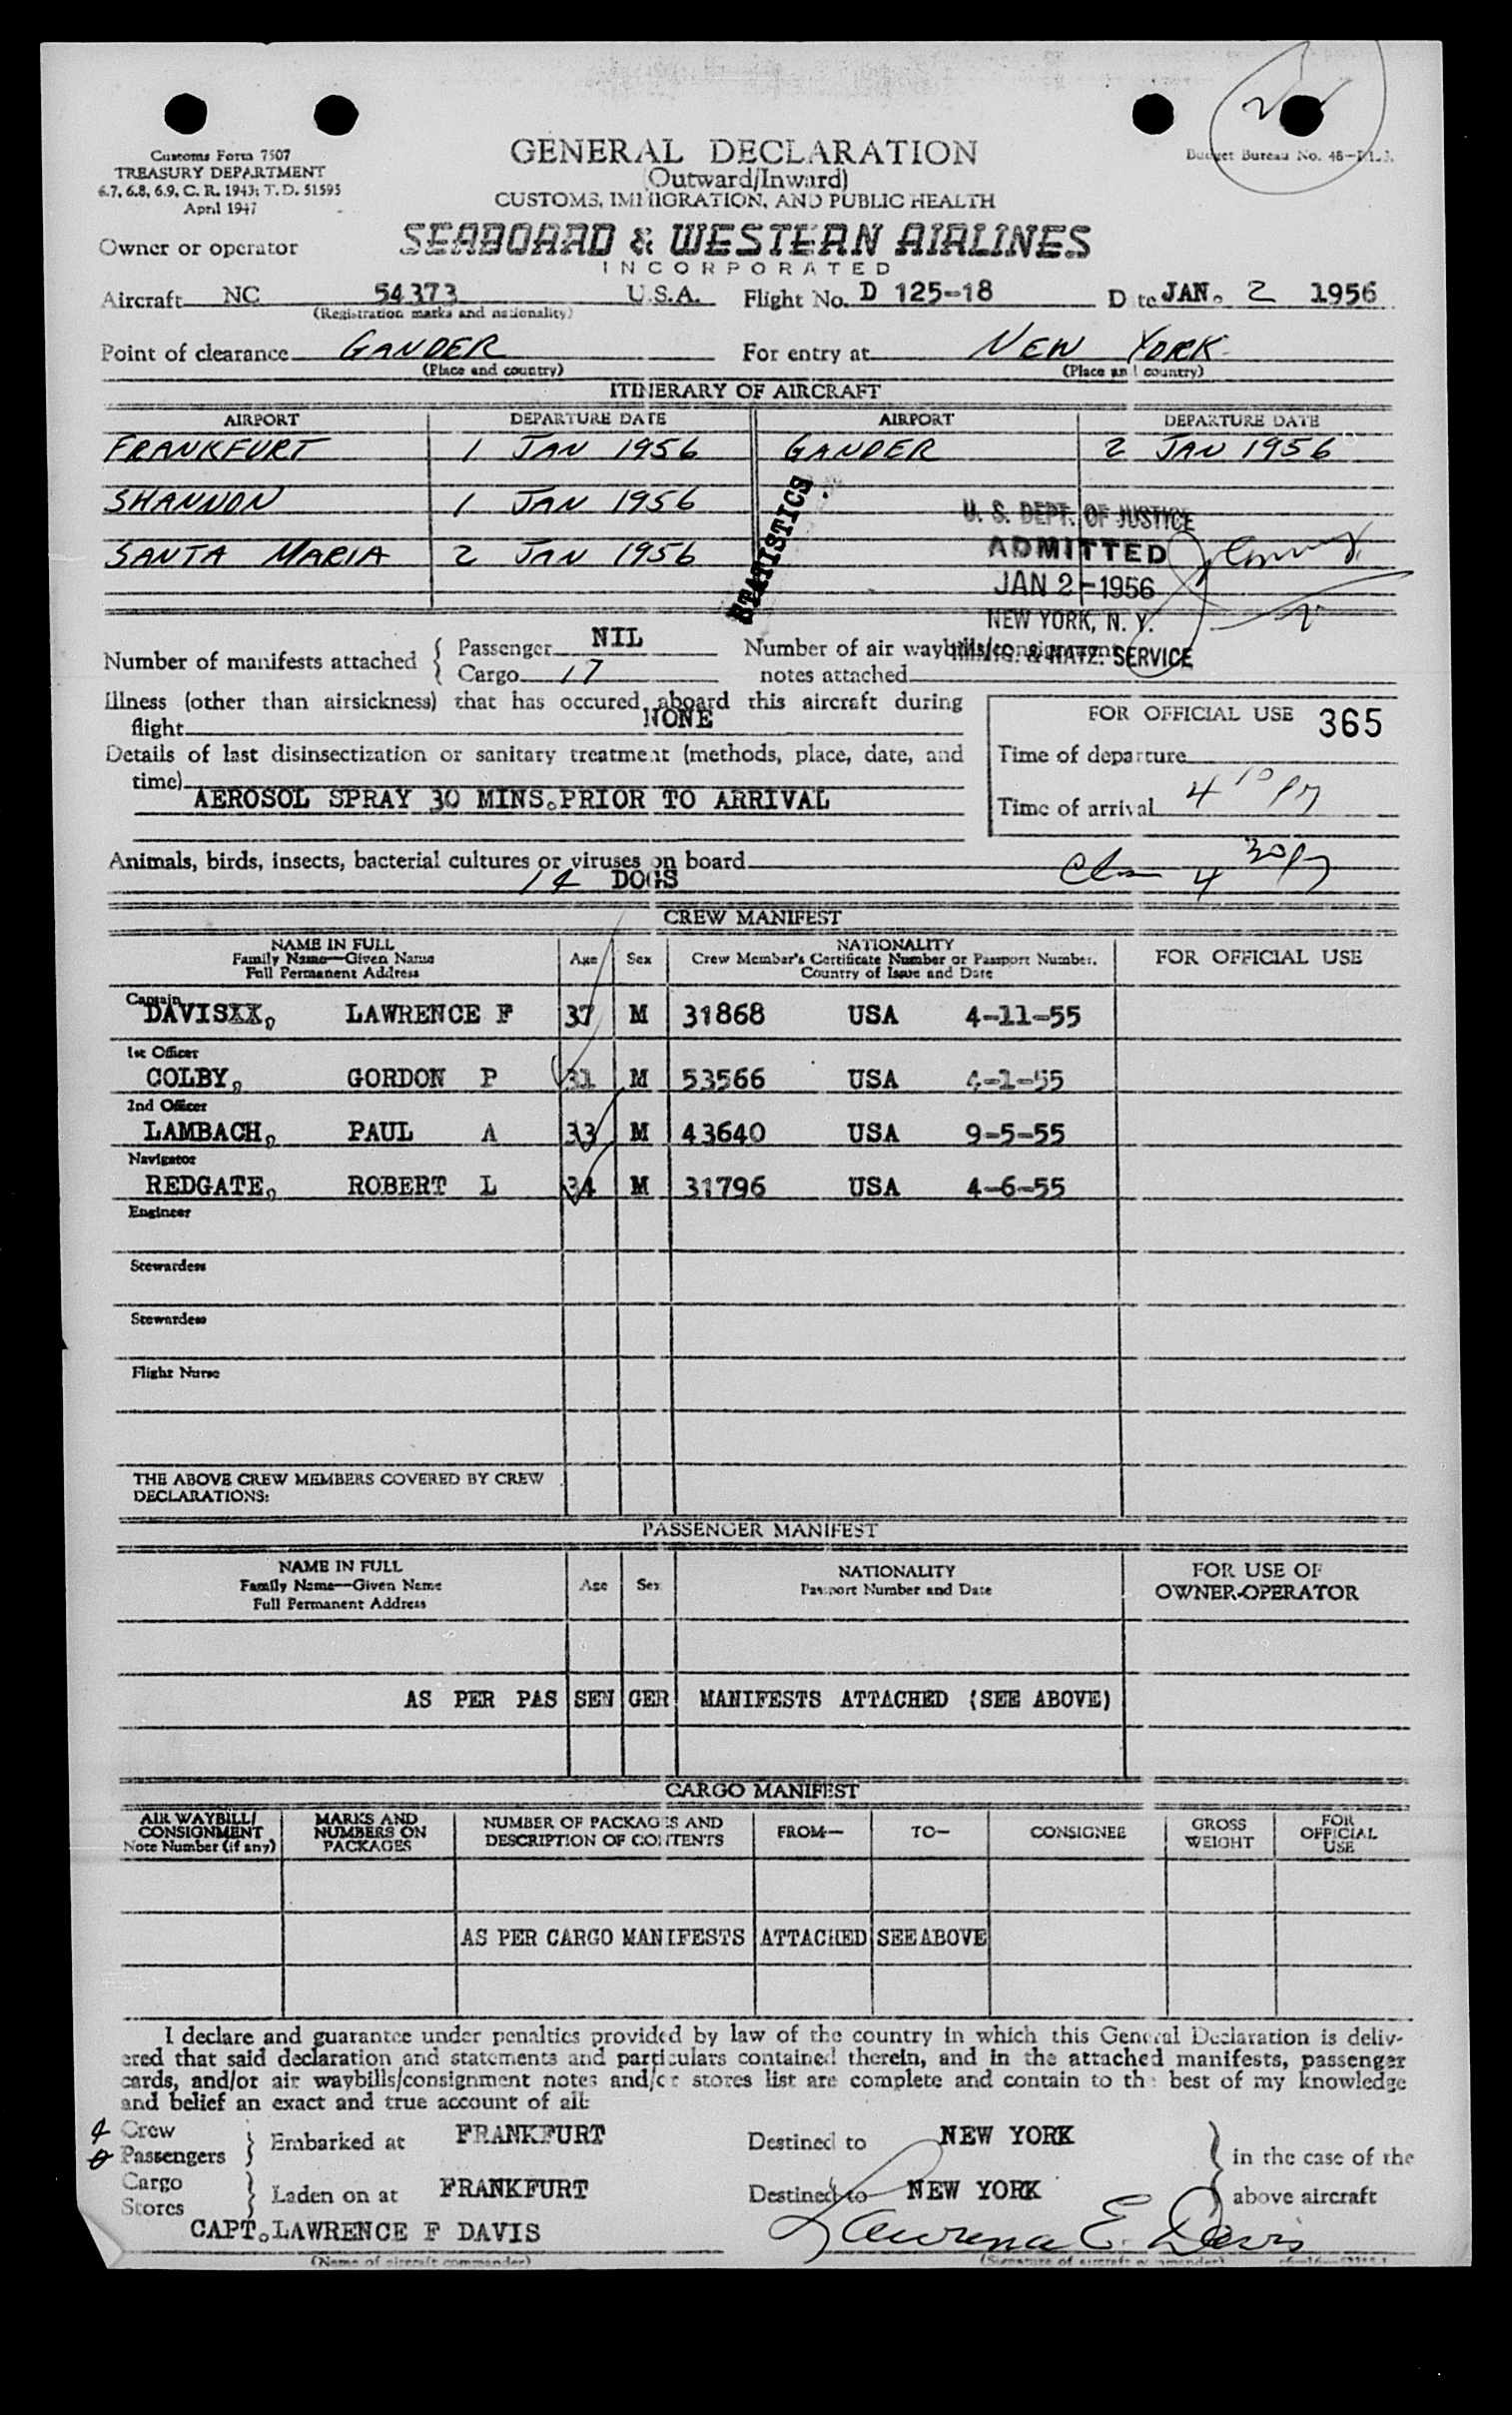 Customs Form 7507
TREASURY DEPARTMENT
6.7, 6.8, 6.9, C. R. 1943; T. D. 51595
April 1947
GENERAL DECLARATION
(Outward/Inward)
CUSTOMS, IMMIGRATION, AND PUBLIC HEALTH
Budget Bureau No.
Owner or operator SEABOARD & WESTERN AIRLINES
INCORPORATED
Aircraft NC 54373 U.S.A. Flight No. D 125-18 Date JAN. 2 1956
(Registration marks and nationality)
Point of clearance GANDER For entry at NEW YORK
(Place and country) (Place and country)
ITINERARY OF AIRCRAFT
AIRPORT DEPARTURE DATE AIRPORT DEPARTURE DATE
FRANKFURT 1 JAN 1956 GANDER 2 JAN 1956
SHANNON 1 JAN 1956
SANTA MARIA 2 JAN 1956
STATISTICS
U. S. DEPT. OF JUSTICE
ADMITTED
JAN 2-1956
NEW YORK, N. Y.
IMMIG. & NATZ. SERVICE
Number of manifests attached { Passenger NIL
Cargo 17
Number of air waybills/consignment
notes attached
Illness (other than airsickness) that has occured aboard this aircraft during
flight NONE
Details of last disinsectization or sanitary treatment (methods, place, date, and
time)
AEROSOL SPRAY 30 MINS.PRIOR TO ARRIVAL
FOR OFFICIAL USE 365
Time of departure
Time of arrival 4 10 PM
Animals, birds, insects, bacterial cultures or viruses on board
14 DOGS
4 30 PM
CREW MANIFEST
NAME IN FULL
Family Name—Given Name
Full Permanent Address
Age Sex
NATIONALITY
Crew Member's Certificate Number or Passport Number.
Country of Issue and Date
FOR OFFICIAL USE
Captain
DAVISXX, LAWRENCE F 37 M 31868 USA 4-11-55
1st Officer
COLBY, GORDON P 31 M 53566 USA 4-1-55
2nd Officer
LAMBACH, PAUL A 33 M 43640 USA 9-5-55
Navigator
REDGATE, ROBERT L 34 M 31796 USA 4-6-55
Engineer
Stewardess
Stewardess
Flight Nurse
THE ABOVE CREW MEMBERS COVERED BY CREW
DECLARATIONS:
PASSENGER MANIFEST
NAME IN FULL
Family Name—Given Name
Full Permanent Address
Age Sex
NATIONALITY
Passport Number and Date
FOR USE OF
OWNER-OPERATOR
AS PER PASSENGER MANIFESTS ATTACHED (SEE ABOVE)
CARGO MANIFEST
AIR WAYBILL/
CONSIGNMENT
Note Number (if any)
MARKS AND
NUMBERS ON
PACKAGES
NUMBER OF PACKAGES AND
DESCRIPTION OF CONTENTS
FROM— TO— CONSIGNEE
GROSS
WEIGHT
FOR
OFFICIAL
USE
AS PER CARGO MANIFESTS ATTACHED SEE ABOVE
I declare and guarantee under penalties provided by law of the country in which this General Declaration is deliv-
ered that said declaration and statements and particulars contained therein, and in the attached manifests, passenger
cards, and/or air waybills/consignment notes and/or stores list are complete and contain to the best of my knowledge
and belief an exact and true account of all:
4 Crew
0 Passengers } Embarked at FRANKFURT Destined to NEW YORK } in the case of the
Cargo
Stores } Laden on at FRANKFURT Destined to NEW YORK above aircraft
CAPT.LAWRENCE F DAVIS Lawrence E. Davis
(Name of aircraft commander) (Signature of aircraft commander)